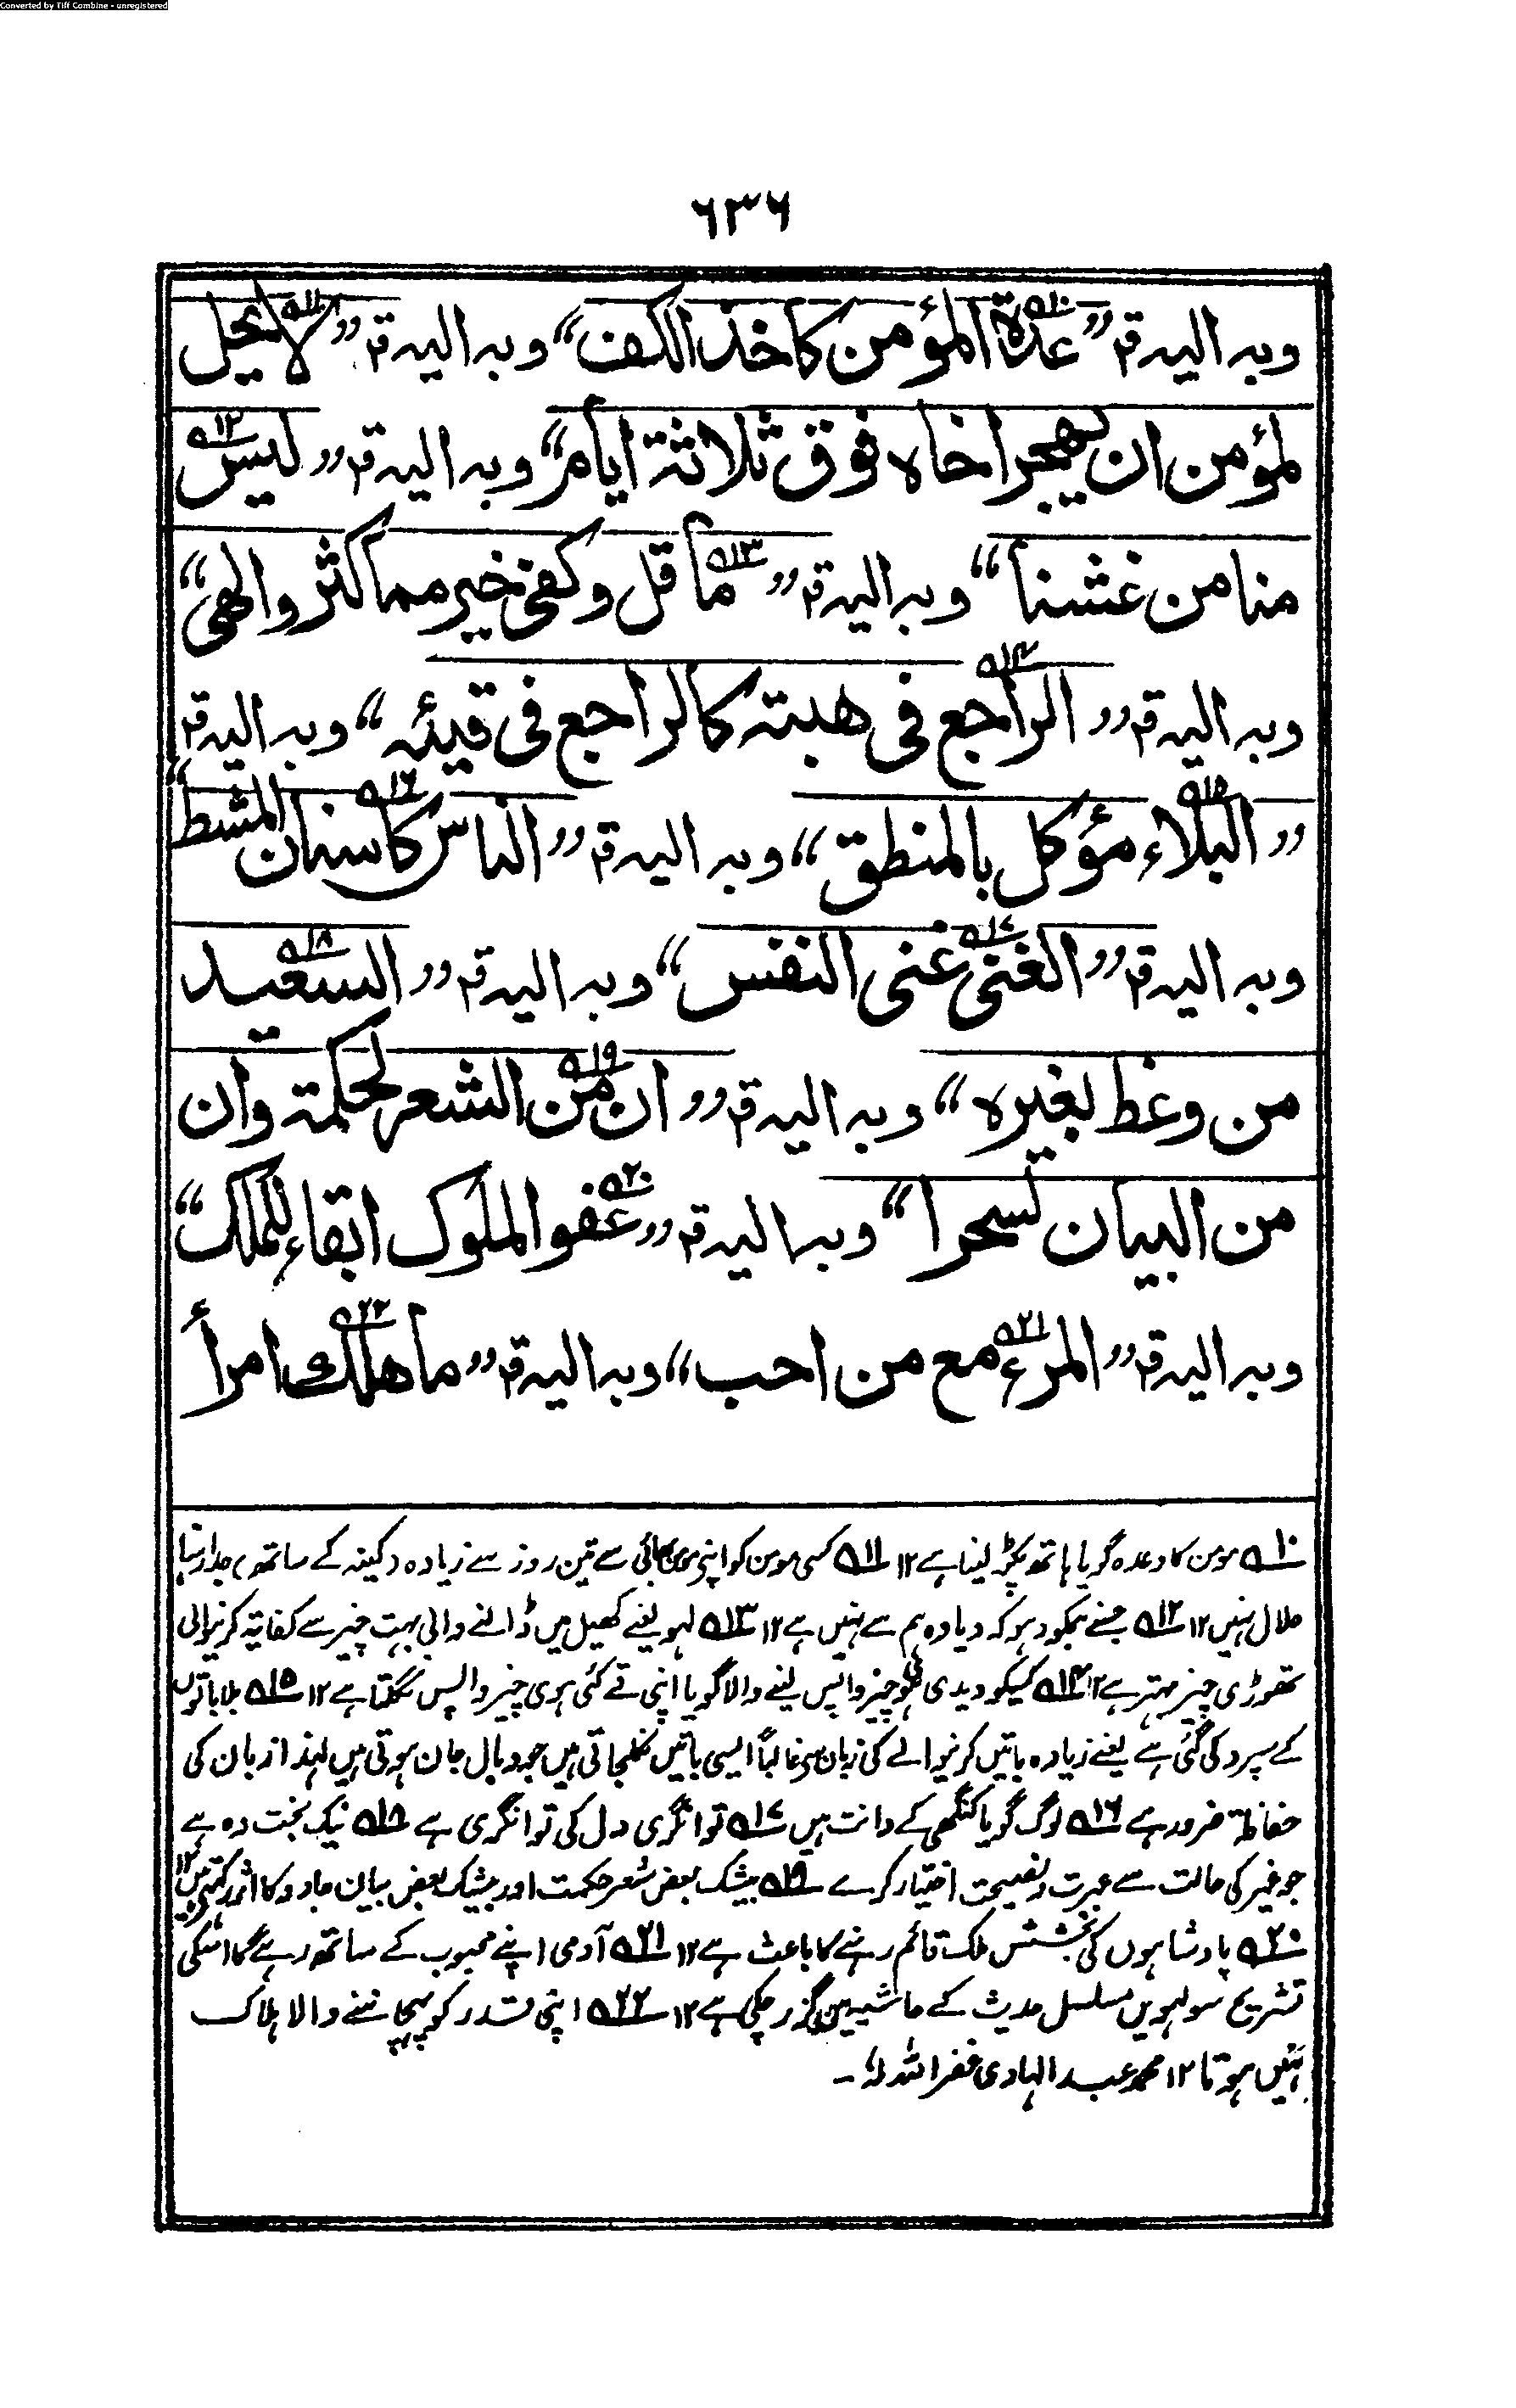 Converted by Tiff Combine - unregistered
٦٣٦
وبہ الیہ قہ ”عدة المؤمن کاخذ الکف“ وبہ الیہ قہ ”لا یحل
لمؤمن ان یھجر اخاہ فوق ثلاثة ایام“ وبہ الیہ قہ ”لیس
منا من غشنا“ وبہ الیہ قہ ”ما قل وکفی خیر مما کثر والھی“
وبہ الیہ قہ ”الراجع فی ھبتہ کالراجع فی قیئہ“ وبہ الیہ قہ
”البلاء مؤکل بالمنطق“ وبہ الیہ قہ ”الناس کاسنان المشط“
وبہ الیہ قہ ”الغنی غنی النفس“ وبہ الیہ قہ ”السعید
من وعظ بغیرہ“ وبہ الیہ قہ ”ان من الشعر لحکمة وان
من البیان لسحرا“ وبہ الیہ قہ ”عفو الملوک ابقاء للملک“
وبہ الیہ قہ ”المرء مع من احب“ وبہ الیہ قہ ”ما ھلک امرأ
؁۱۰ مومن کا وعدہ گویا ہاتھ پکڑ لینا ہے ۱۲ ؁۱۱ کسی مومن کو اپنی مومن بھائی سے تین روز سے زیادہ (کینہ کے ساتھ) جدا رہنا
حلال نہیں ۱۲ ؁۱۲ جسنے ہمکو دہوکہ دیا وہ ہم سے نہیں ہے ۱۲ ؁۱۳ لہو یعنے کھیل میں ڈالنے والی بہت چیز سے کفایة کرنیوالی
تھوڑی چیز بہتر ہے ۱۲ ؁۱۴ کسیکو دیدی ہوئی چیز واپس لینے والا گویا اپنی قے کئی ہوی چیز واپس نگلتا ہے ۱۲ ؁۱۵ بلا باتوں
کے سپرد کی گئی ہے یعنے زیادہ باتیں کرنیوالے کی زبان سے غالباً ایسی باتیں نکلجاتی ہیں جو وبال جان ہوتی ہیں لہذا زبان کی
حفاظة ضرور ہے ؁۱۶ لوگ گویا کنگھی کے دانت ہیں ؁۱۷ توانگری دل کی توانگری ہے ؁۱۸ نیک بخت وہ ہے
جو غیر کی حالت سے عبرت ونصیحت اختیار کرے ؁۱۹ بیشک بعض شعر حکمت اور بیشک بعض بیان جادو کا اثر رکھتے ہیں ۱۲
؁۲۰ پادشاہوں کی بخشش ملک قائم رہنے کا باعث ہے ۱۲ ؁۲۱ آدمی اپنے محبوب کے ساتھ رہے گا اسکی
تشریح سولہویں مسلسل حدیث کے حاشیہ میں گزر چکی ہے ۱۲ ؁۲۲ اپنی قدر کو پہچاننے والا ہلاک
نہیں ہوتا ۱۲ محمد عبد الہادی غفر اللہ لہٗ -